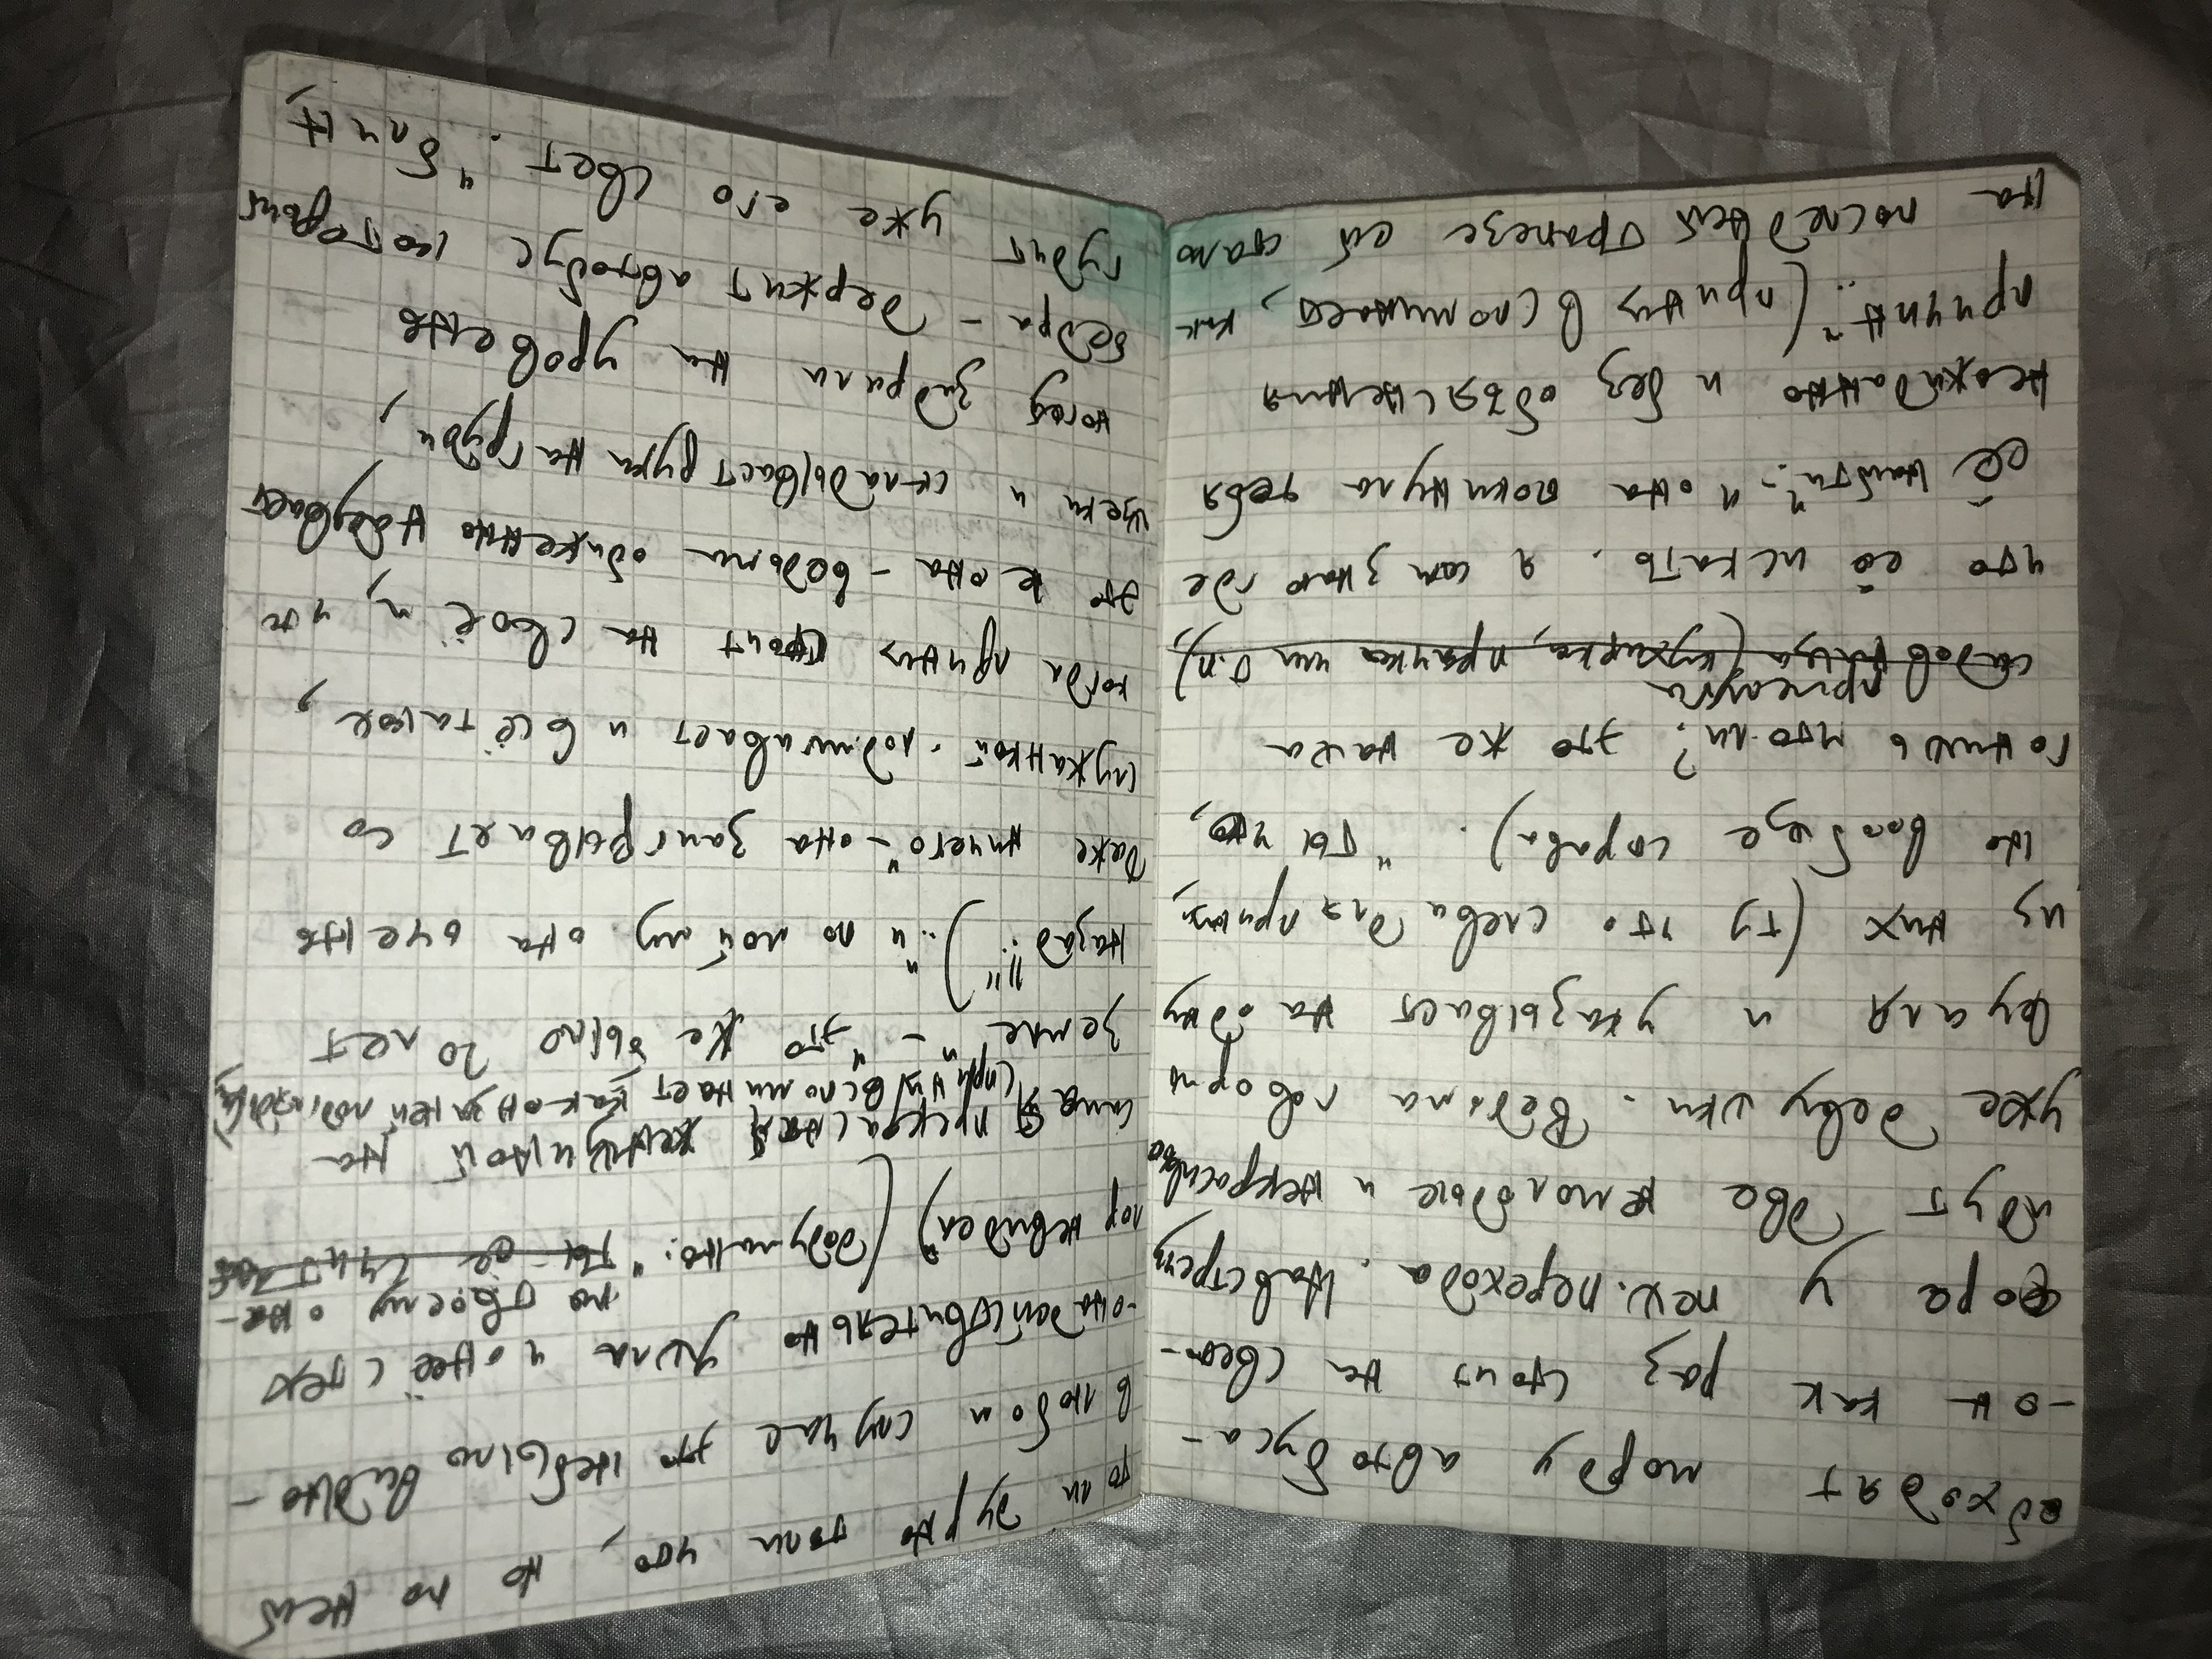 обходят морду автобуса-
-он как раз стоит на свето-
форе у пеш. перехода. Навстречу
идут две немолодые и некрасивые
уже девушки. Ведьма говорит
вуаля и указывает на одну
из них (ту что слева для принца,
но вообще справа). "Ты что,
гонишь что-ли? это же наша
прислуга
садовница (кухарка, прачка или т.п),
что её искать. я сам знаю где
её найти?"- "она покинула тебя
неожиданно и без объяснения
причин.." (принц вспоминает, как
на последней трапезе ей стало
толи дурно толи что, но по ней
в любом случае это небыло видно-
-онадействительно ушла и онеё с тех
по твоему она-
пор невидел) (додумано: "ты её считаешь
самая прекрасная женщиной на
(принц вспоминает как он за ней подглядывал)
земле" - "это же было 20 лет
назад!!").. "и по мойму она очень
даже ничего" - она заигрывает со
служанкой - подмигивает и всё такое,
когда принц стоит на своём, что
это не она - ведьма обиженно надувает
щеки и складывает руки на груди,
ногой задрала на уровень
бедра - держит автобус который
гудит уже его свет. "блин,